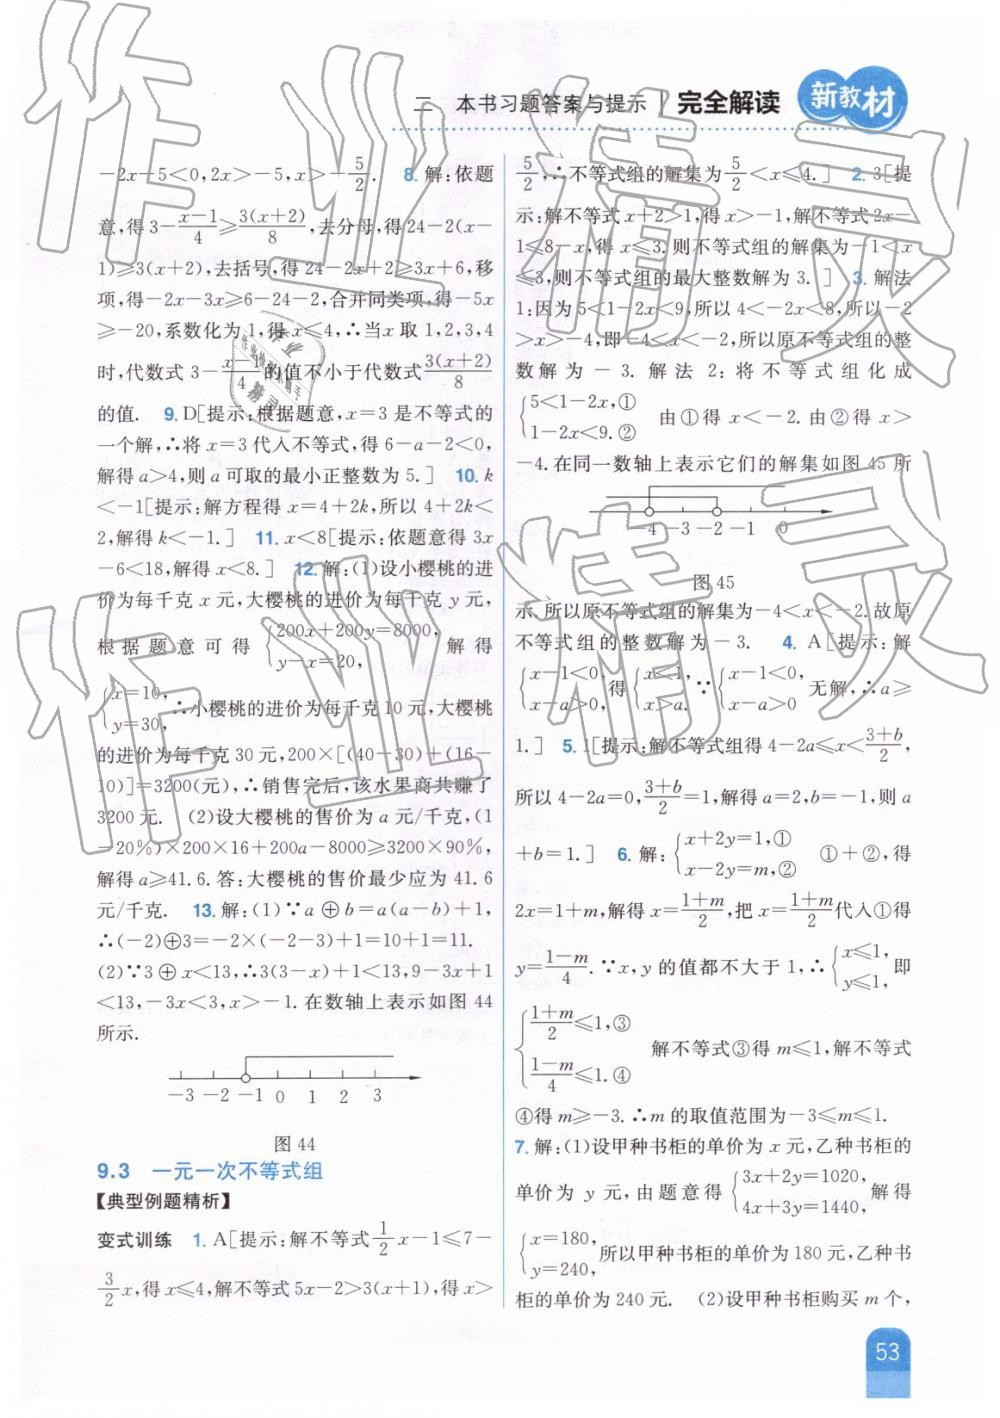 二 本书习题答案与提示 完全解读 新教材
-2x-5<0,2x>-5,x>-5/2. 8. 解:依题
意,得3-(x-1)/4≥3(x+2)/8,去分母,得24-2(x-
1)≥3(x+2),去括号,得24-2x+2≥3x+6,移
项,得-2x-3x≥6-24-2,合并同类项,得-5x
≥-20,系数化为1,得x≤4,∴当x取1,2,3,4
时,代数式3-(x-1)/4的值不小于代数式3(x+2)/8
的值. 9. D[提示:根据题意,x=3是不等式的
一个解,∴将x=3代入不等式,得6-a-2<0,
解得a>4,则a可取的最小正整数为5.] 10. k
<-1[提示:解方程得x=4+2k,所以4+2k<
2,解得k<-1.] 11. x<8[提示:依题意得3x
-6<18,解得x<8.] 12. 解:(1)设小樱桃的进
价为每千克x元,大樱桃的进价为每千克y元,
根据题意可得{200x+200y=8000, y-x=20, 解得
{x=10, y=30, ∴小樱桃的进价为每千克10元,大樱桃
的进价为每千克30元,200×[(40-30)+(16-
10)]=3200(元),∴销售完后,该水果商共赚了
3200元. (2)设大樱桃的售价为a元/千克,(1
-20%)×200×16+200a-8000≥3200×90%,
解得a≥41.6.答:大樱桃的售价最少应为41.6
元/千克. 13. 解:(1)∵a⊕b=a(a-b)+1,
∴(-2)⊕3=-2×(-2-3)+1=10+1=11.
(2)∵3⊕x<13,∴3(3-x)+1<13,9-3x+1
<13,-3x<3,x>-1.在数轴上表示如图44
所示.
-3 -2 -1 0 1 2 3
图44
9.3 一元一次不等式组
【典型例题精析】
变式训练 1. A[提示:解不等式1/2x-1≤7-
3/2x,得x≤4,解不等式5x-2>3(x+1),得x>
5/2,∴不等式组的解集为5/2<x≤4.] 2. 3[提
示:解不等式x+2>1,得x>-1,解不等式2x-
1≤8-x,得x≤3.则不等式组的解集为-1<x
≤3,则不等式组的最大整数解为3.] 3. 解法
1:因为5<1-2x<9,所以4<-2x<8,所以-2
>x>-4,即-4<x<-2,所以原不等式组的整
数解为-3. 解法2:将不等式组化成
{5<1-2x,① 1-2x<9.② 由①得x<-2.由②得x>
-4.在同一数轴上表示它们的解集如图45所
-4 -3 -2 -1 0
图45
示.所以原不等式组的解集为-4<x<-2.故原
不等式组的整数解为-3. 4. A[提示:解
{x-1<0, x-a>0, 得{x<1, x>a. ∵{x-1<0, x-a>0 无解,∴a≥
1.] 5. 1[提示:解不等式组得4-2a≤x<(3+b)/2,
所以4-2a=0,(3+b)/2=1,解得a=2,b=-1,则a
+b=1.] 6. 解:{x+2y=1,① x-2y=m,② ①+②,得
2x=1+m,解得x=(1+m)/2,把x=(1+m)/2代入①得
y=(1-m)/4.∵x,y的值都不大于1,∴{x≤1, y≤1, 即
{(1+m)/2≤1,③ (1-m)/4≤1.④ 解不等式③得m≤1,解不等式
④得m≥-3.∴m的取值范围为-3≤m≤1.
7. 解:(1)设甲种书柜的单价为x元,乙种书柜的
单价为y元,由题意得{3x+2y=1020, 4x+3y=1440, 解得
{x=180, y=240, 所以甲种书柜的单价为180元,乙种书
柜的单价为240元. (2)设甲种书柜购买m个,
53
作业精灵
作业精灵